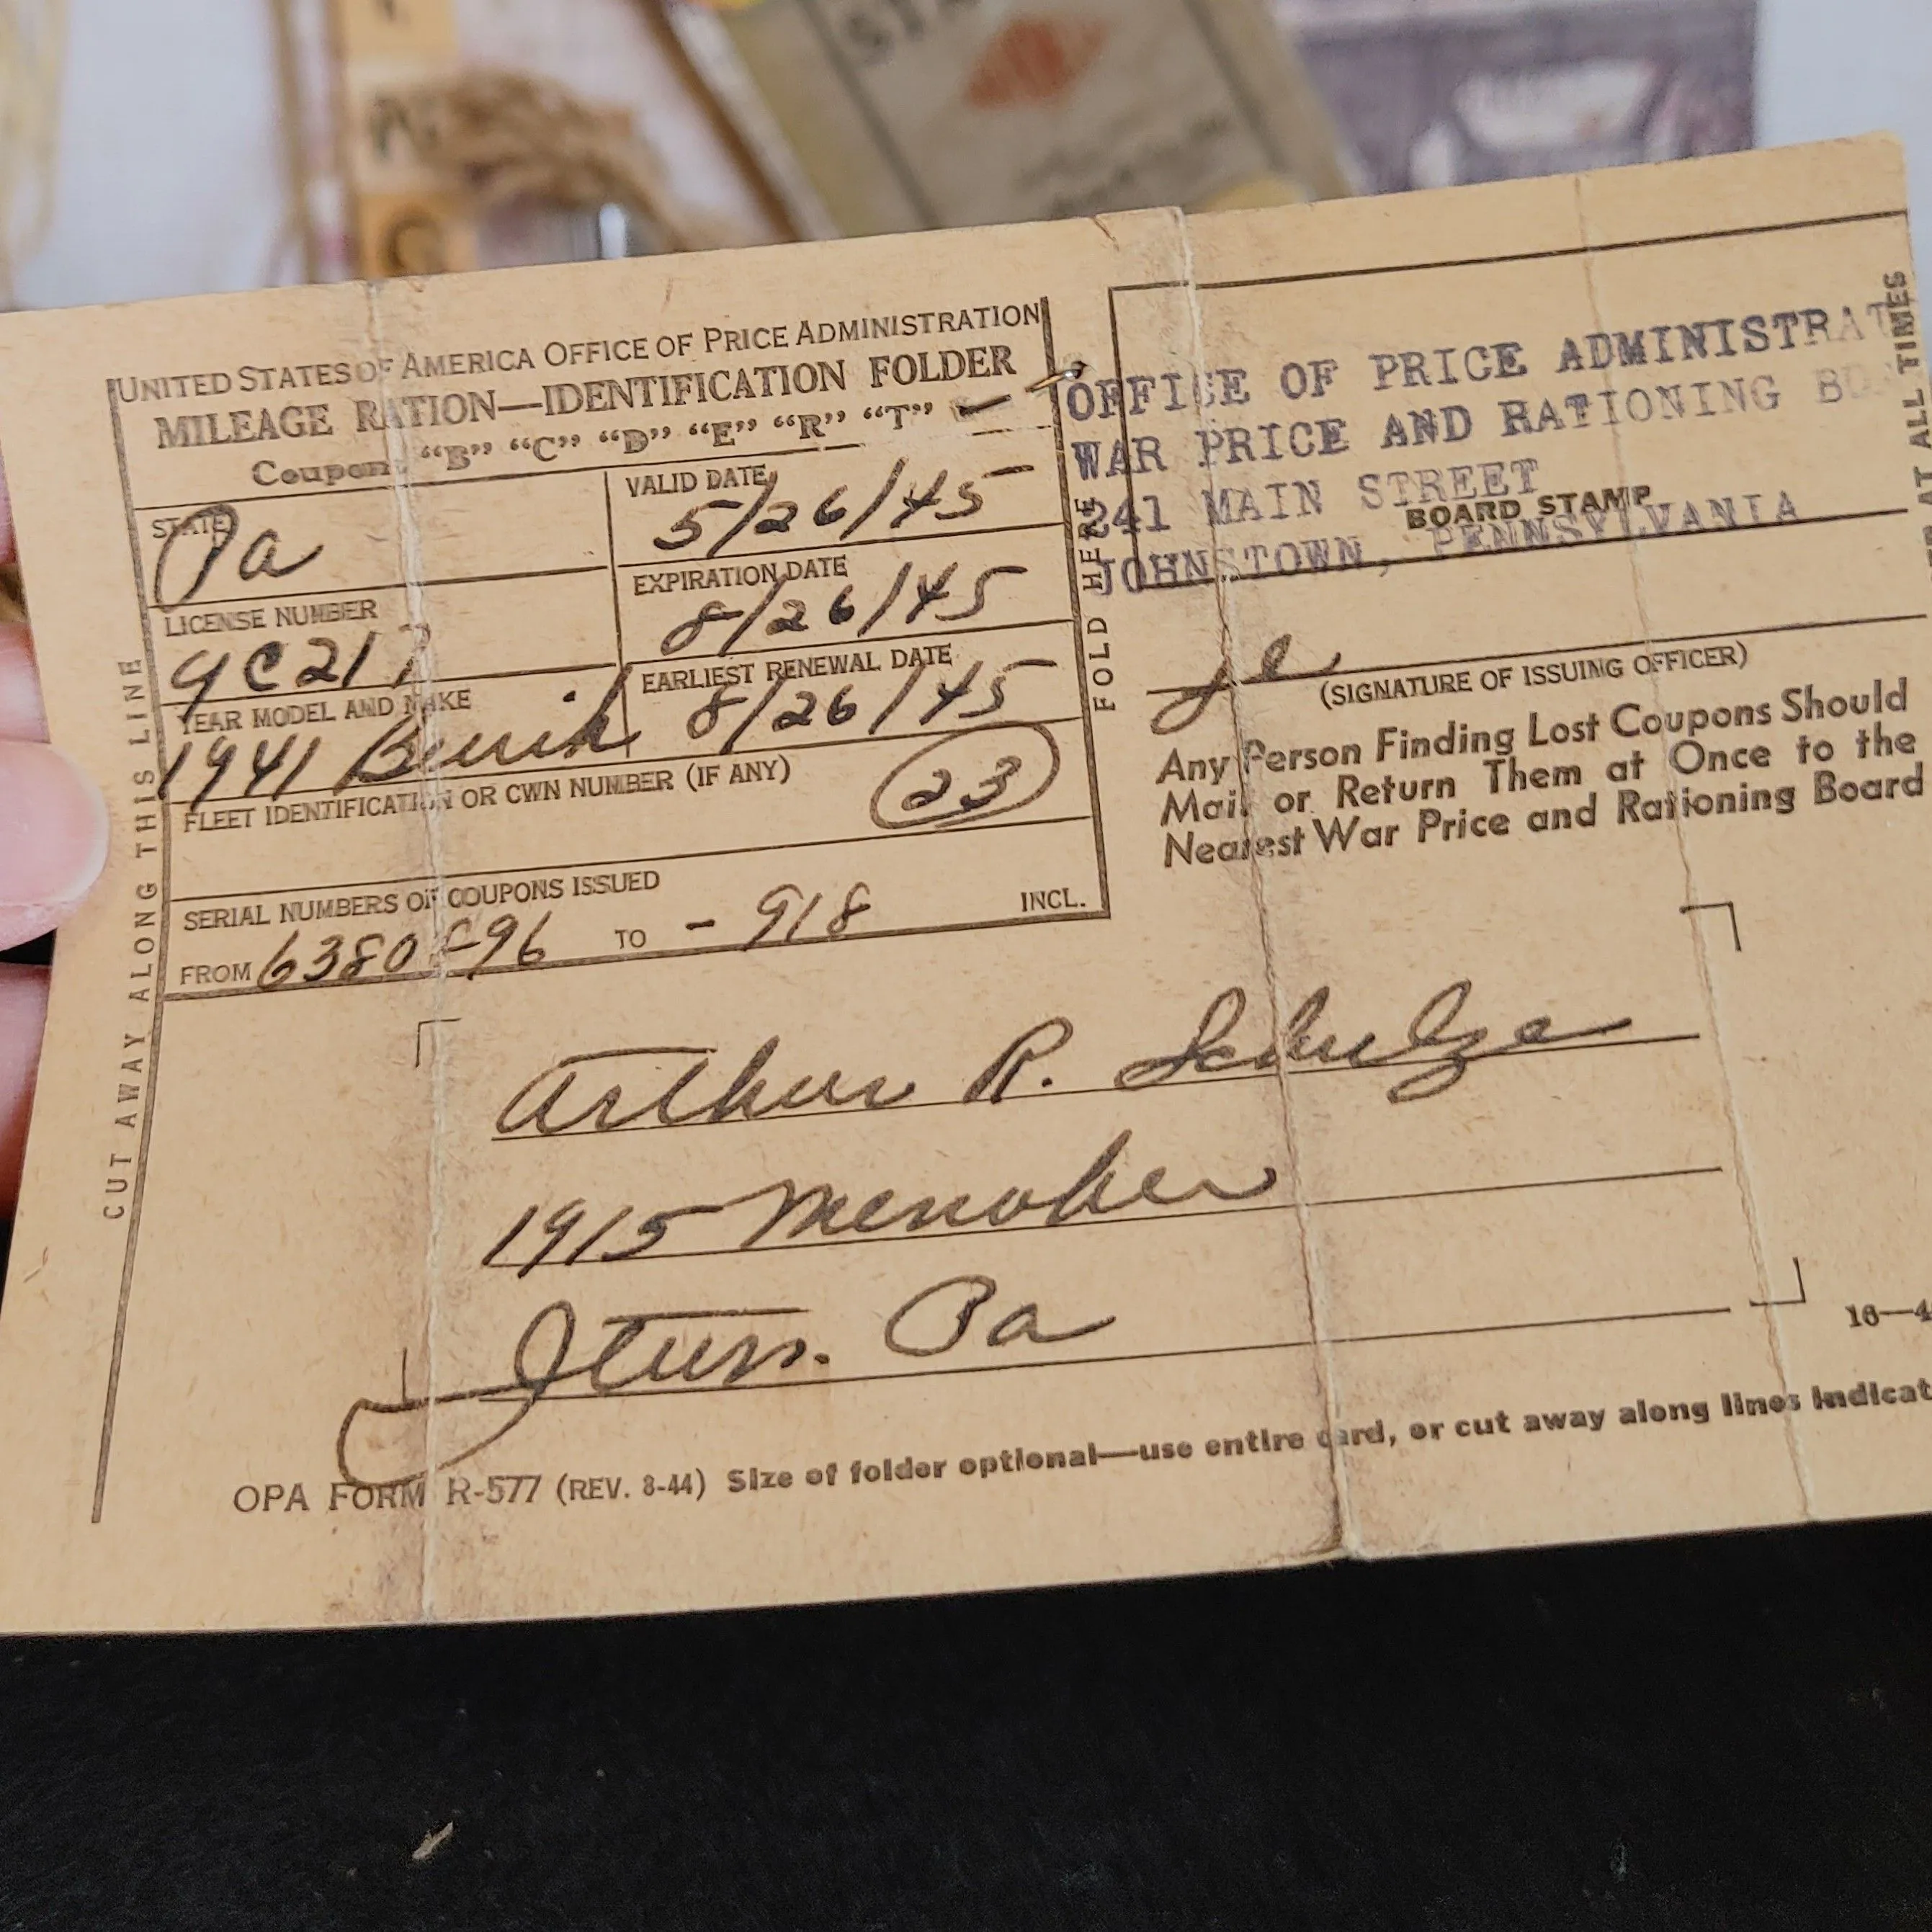 UNITED STATES OF AMERICA OFFICE OF PRICE ADMINISTRATION
MILEAGE RATION—IDENTIFICATION FOLDER
Coupons "B" "C" "D" "E" "R" "T"
STATE
Pa
VALID DATE
5/26/45
LICENSE NUMBER
9C217
EXPIRATION DATE
8/26/45
YEAR MODEL AND MAKE
1941 Buick
EARLIEST RENEWAL DATE
8/26/45
FLEET IDENTIFICATION OR CWN NUMBER (IF ANY)
23
SERIAL NUMBERS OF COUPONS ISSUED
FROM 6380896 TO - 918 INCL.
CUT AWAY ALONG THIS LINE
FOLD HERE
OFFICE OF PRICE ADMINISTRAT
WAR PRICE AND RATIONING BD
241 MAIN STREET
BOARD STAMP
JOHNSTOWN, PENNSYLVANIA
(SIGNATURE OF ISSUING OFFICER)
Any Person Finding Lost Coupons Should
Mail or Return Them at Once to the
Nearest War Price and Rationing Board
AT ALL TIMES
Arthur R. Schulze
1915 Menoher
Jtwn. Pa
16—4
OPA FORM R-577 (REV. 8-44) Size of folder optional—use entire card, or cut away along lines indicat